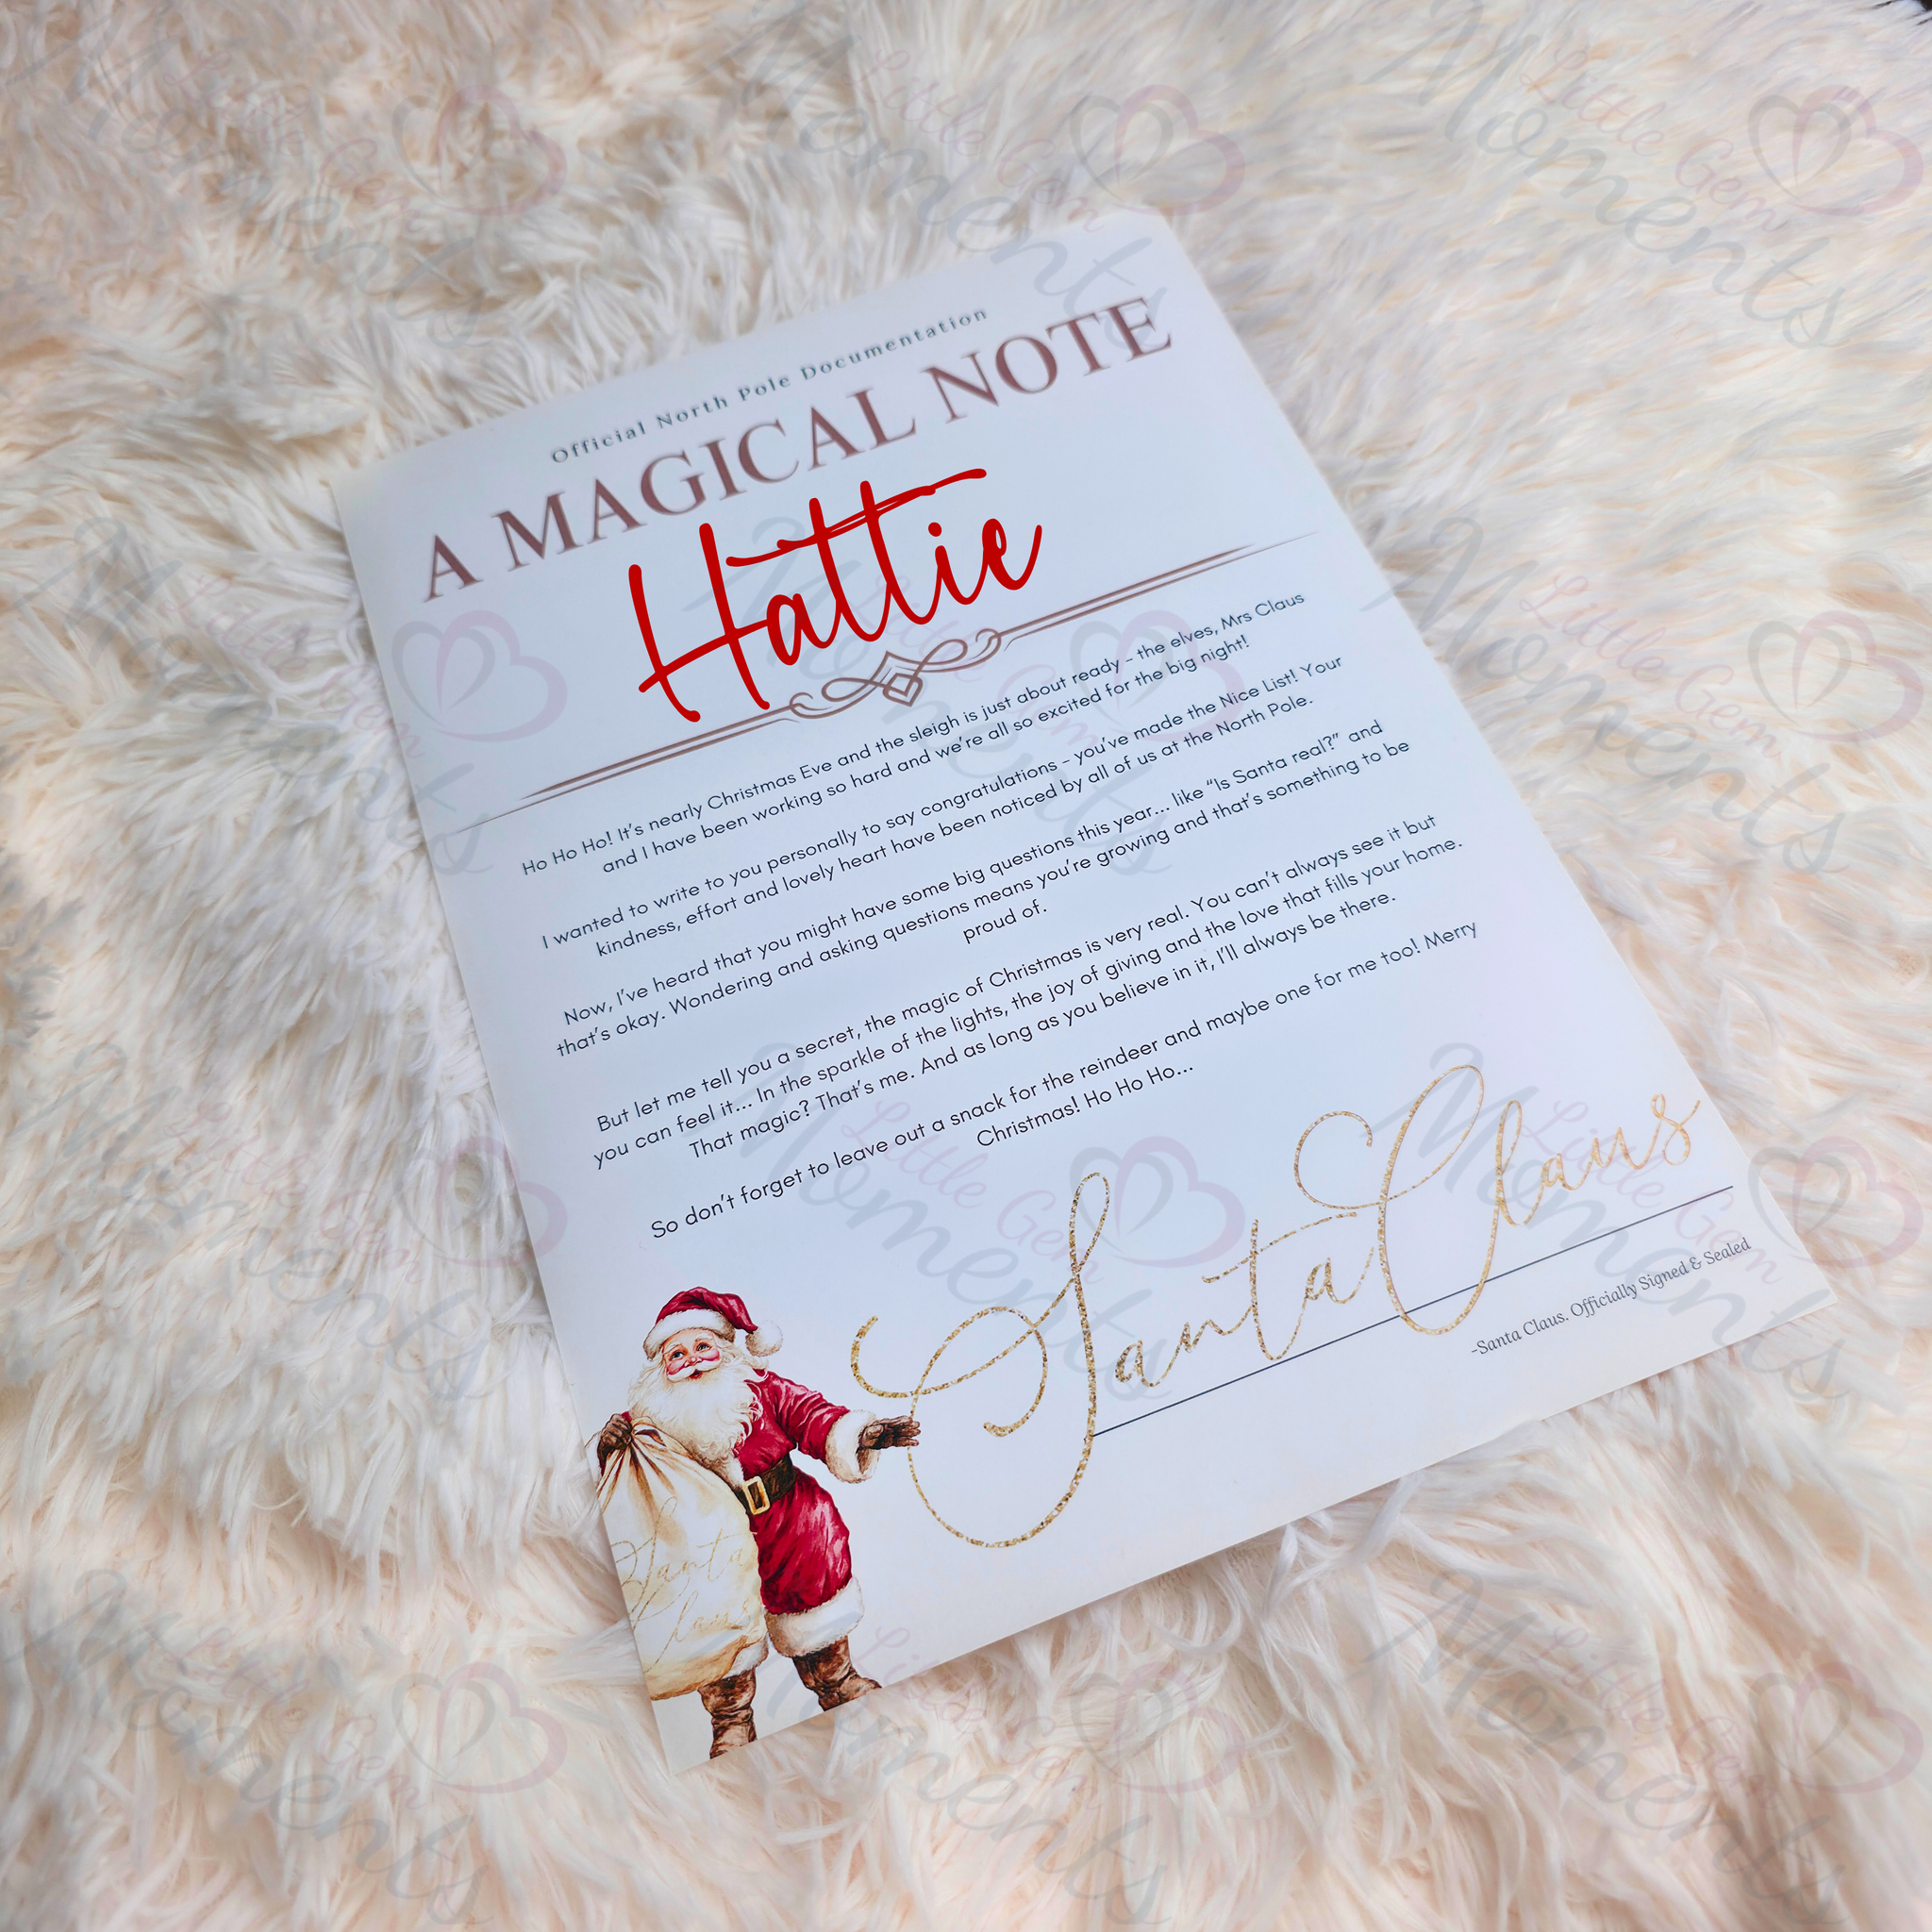 Official North Pole Documentation
A MAGICAL NOTE
Hattie
Ho Ho Ho! It's nearly Christmas Eve and the sleigh is just about ready - the elves, Mrs Claus
and I have been working so hard and we're all so excited for the big night!
I wanted to write to you personally to say congratulations - you've made the Nice List! Your
kindness, effort and lovely heart have been noticed by all of us at the North Pole.
Now, I've heard that you might have some big questions this year... like “Is Santa real?” and
that's okay. Wondering and asking questions means you're growing and that's something to be
proud of.
But let me tell you a secret, the magic of Christmas is very real. You can't always see it but
you can feel it... In the sparkle of the lights, the joy of giving and the love that fills your home.
That magic? That's me. And as long as you believe in it, I'll always be there.
So don't forget to leave out a snack for the reindeer and maybe one for me too! Merry
Christmas! Ho Ho Ho...
Santa Claus
-Santa Claus. Officially Signed & Sealed
Santa
Claus
Little Gem
Moments